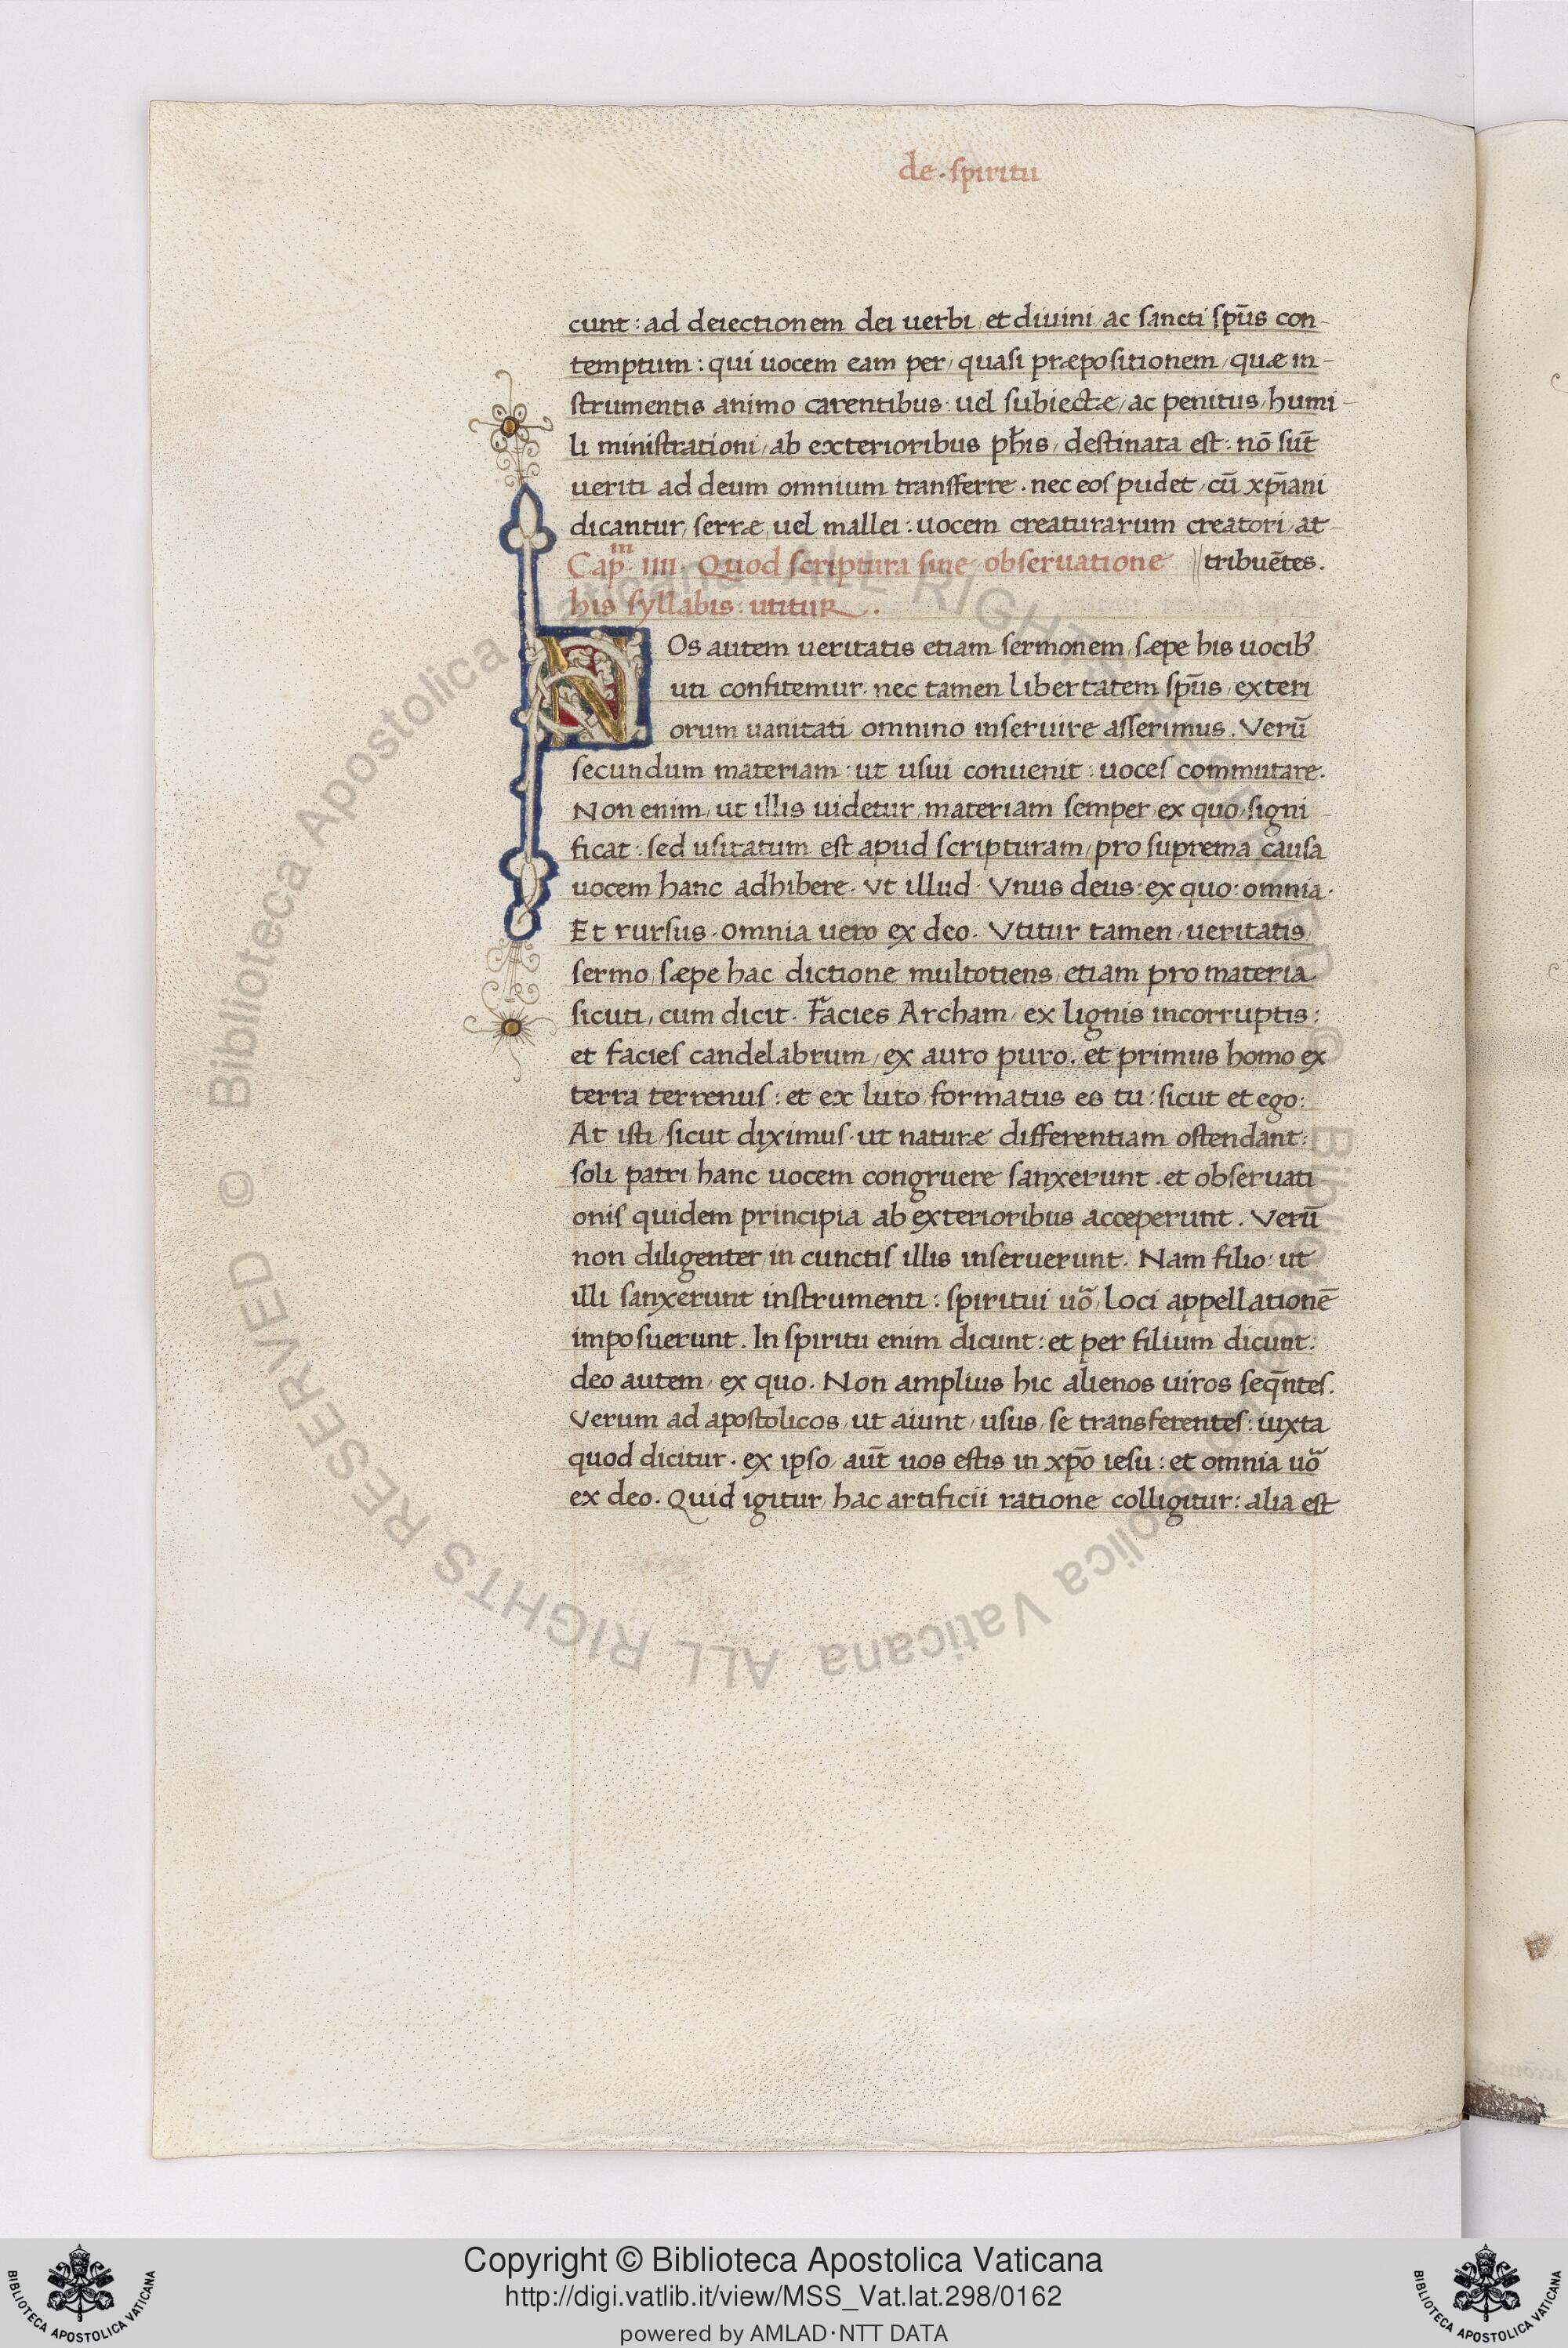 de · spiritu
cunt: ad deiectionem dei uerbi, et diuini ac sancti sp̄us con-
temptum: qui uocem eam per, quasi præpositionem, quæ in-
strumentis animo carentibus uel subiectæ, ac penitus humi-
li ministrationi, ab exterioribus ph̄is, destinata est: nō sūt
ueriti ad deum omnium transferre. nec eos pudet, cū xp̄iani
dicantur, serræ uel mallei: uocem creaturarum creatori at-
tribuētes.
Cap.ᵐ IIII. Quod scriptura sine obseruatione
his syllabis utitur.
NOs autem ueritatis etiam sermonem sæpe his uocib'
uti confitemur. nec tamen libertatem sp̄us, exteri
orum uanitati omnino inseruire asserimus. Verū
secundum materiam: ut usui conuenit: uoces commutare.
Non enim, ut illis uidetur, materiam semper, ex quo, signi-
ficat: sed usitatum est apud scripturam, pro suprema causa
uocem hanc adhibere. Vt illud. Vnus deus: ex quo: omnia.
Et rursus. omnia uero ex deo. Vtitur tamen, ueritatis
sermo sæpe hac dictione multotiens, etiam pro materia.
sicuti, cum dicit. Facies Archam, ex lignis incorruptis:
et facies candelabrum, ex auro puro. et primus homo ex
terra terrenus: et ex luto formatus es tu: sicut et ego:
At isti, sicut diximus. ut naturæ differentiam ostendant:
soli patri hanc uocem congruere sanxerunt. et obseruati
onis quidem principia ab exterioribus acceperunt. Verū
non diligenter in cunctis illis inseruerunt. Nam filio: ut
illi sanxerunt instrumenti: spiritui uō, loci appellationē
imposuerunt. In spiritu enim dicunt: et per filium dicunt:
deo autem, ex quo. Non amplius hic alienos uiros seq̄ntes.
Verum ad apostolicos, ut aiunt, usus, se transferentes: iuxta
quod dicitur. ex ipso, aūt uos estis in xp̄o iesu: et omnia uō
ex deo. Quid igitur, hac artificii ratione colligitur: alia est
© Biblioteca Apostolica Vaticana ALL RIGHTS RESERVED
© Biblioteca Apostolica Vaticana ALL RIGHTS RESERVED
Copyright © Biblioteca Apostolica Vaticana
http://digi.vatlib.it/view/MSS_Vat.lat.298/0162
powered by AMLAD·NTT DATA
BIBLIOTECA APOSTOLICA VATICANA
BIBLIOTECA APOSTOLICA VATICANA